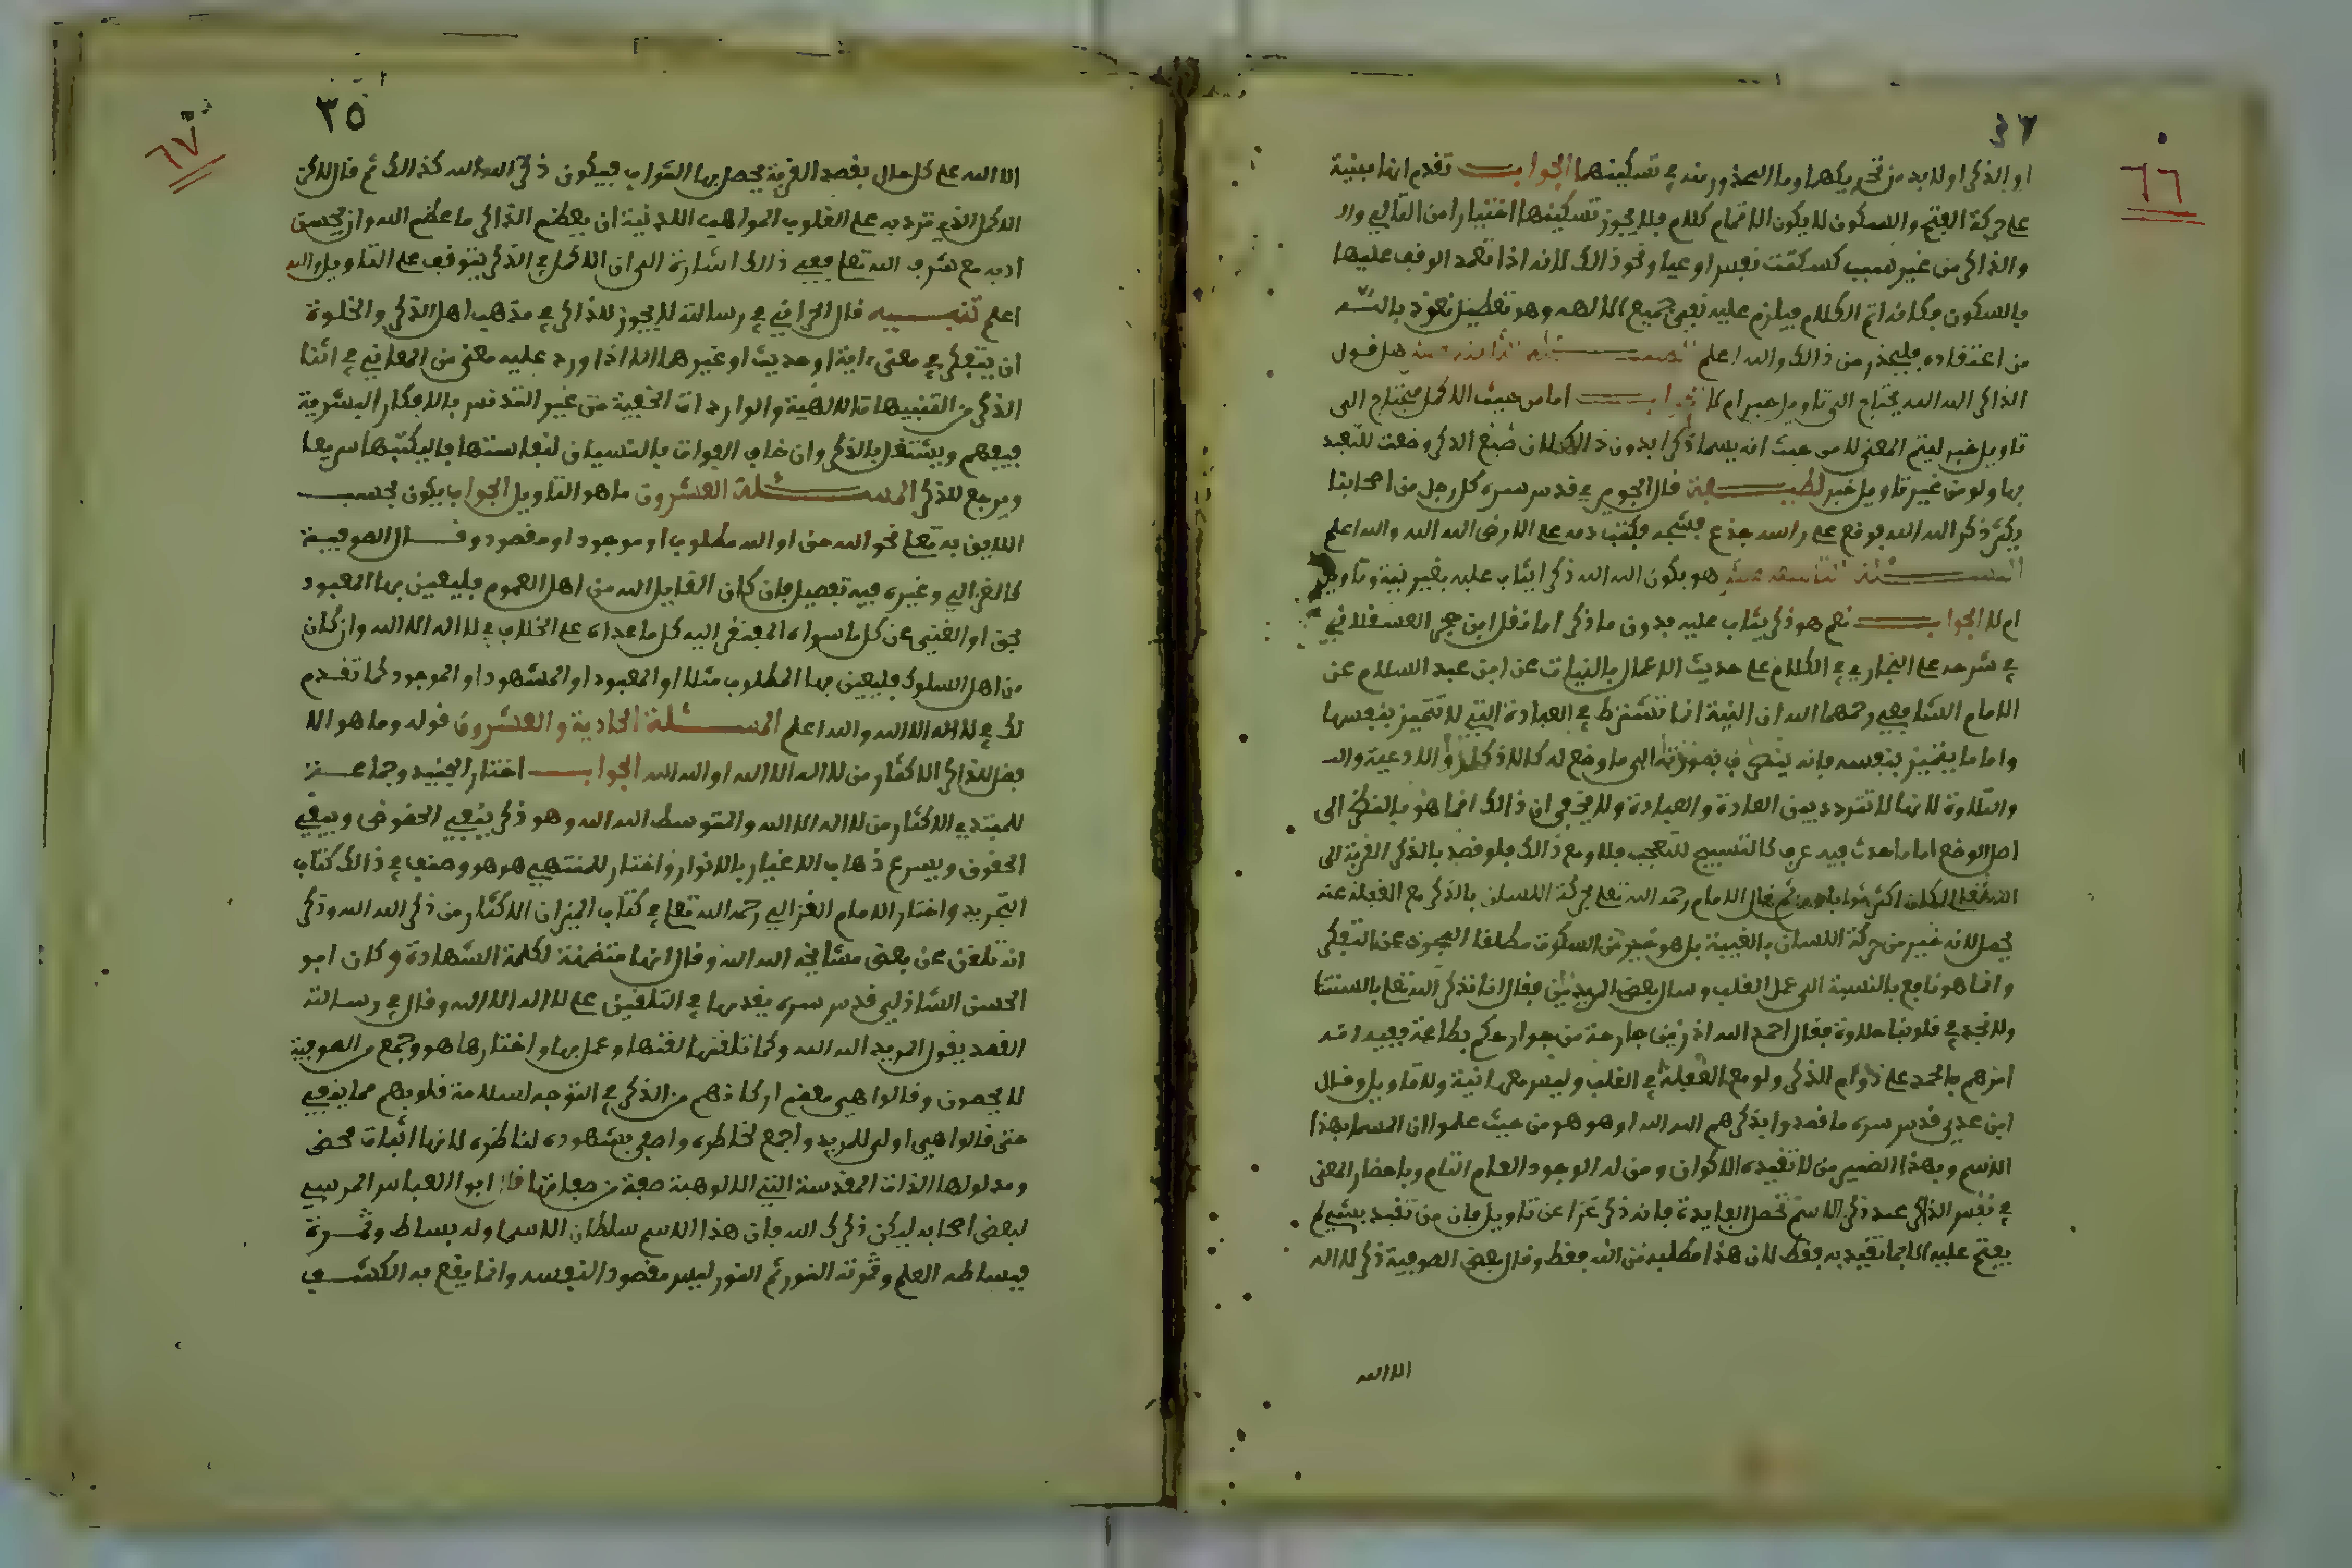 ٦٦
٣٤
او الذكر اولا بد من تحريكها وما المحذور منه في تسكينها الجواب تقدم انها مبنية
على حركة الفتح والسكون لا يكون الا تمام كلام فلا يجوز تسكينها اختيارا من التالي
والذاكر من غير سبب كسكتت نفس او عيا ونحو ذالك لانه اذا تعمد الوقف عليها
بالسكون فكانه اتم الكلام فيلزم عليه نفي جميع الالهه وهو تعطيل نعوذ بالله
من اعتقاده فليحذر من ذالك والله اعلم المسئلة الثامنة عشر هل قول
الذاكر الله الله يحتاج الى تاويل خبر ام لا الجواب اما من حيث الاكمل فيحتاج الى
تاويل خبر ليتم المعنى لا من حيث انه يسما ذكرا بدون ذالك لان صيغ الذكر وضعت للتعبد
بها ولو من غير تاويل خبر لطيفة قال قدس سره كل رجل من اصحابنا
يكثر ذكر الله الله فوقع على راسه جذع فشجه فكتب دمه على الارض الله الله والله اعلم
المسئلة التاسعة عشر هو يكون الله الله ذكر ايثاب عليه بغير نية وتاويل
ام لا الجواب نعم هو ذكر يثاب عليه بدون ما ذكر اما نقل ابن حجر العسقلاني
في شرحه على البخاري في الكلام على حديث الاعمال بالنيات عن ابن عبد السلام عن
الامام الشافعي رحمهما الله ان النية انما تشترط في العبادة التي لا تتميز بنفسها
واما ما يتميز بنفسه فانه ينصرف بصورته الى ما وضع له كالاذكار والادعية
والتلاوة لانها لا تتردد بين العادة والعبادة ولا يخفى ان ذالك انما هو بالنظر الى
اصل الوضع اما ما حدث فيه عرف كالتسبيح للتعجب فلا ومع ذالك فلو قصد بالذكر القربة الى
الله تعالى لكان اكثر ثوابا ثم قال الامام رحمه الله تعلى حركة اللسان بالذكر مع الغفلة عنه
تحصل لانه خير من حركة اللسان بالغيبة بل هو خير من السكوت مطلقا المجون عن التفكر
وانما هو نافع بالنسبة الى عمل القلب وسال بعض المريدين فقال انا نذكر الله تعلى بالسنتنا
ولا نجد في قلوبنا حلاوة فقال احمد الله اذ زين جارحة من جوارحكم بطاعته
امرهم بالحمد على دوام الذكر ولو مع الغفلة في القلب وليس معها نية ولا تاويل وقال
ابن عدي قدس سره ما قصدوا بذكرهم الله الله او هو هو من حيث علموا ان المسما بهذا
الاسم وبهذا الضمير من لا تقيده الاكوان ومن له الوجود العام التام وباحضار المعنى
في نفس الذاكر عند ذكر الاسم تحصل الفايدة فانه ذكر عرا عن تاويل فان من تقيد بشيئ لم
يفتح عليه الا بما تقيد به فقط لان هذا مطلبه من الله فقط وقال بعض الصوفية ذكر لا اله
الا الله
٦٧
٣٥
الا الله على كل حال بقصد القربة يحصل بها الثواب فيكون ذكر الله الله كذالك ثم قال لاكن
الاكمل الذي ترد به على القلوب المواهب اللدنية ان يعظم الذاكر ما عظم الله وان يحسن
ادبه مع شرف الله تعلى ففي ذالك اشارة الى ان الاكمل في الذكر يتوقف على التاويل والله
اعلم تنبيه قال الخرافي في رسالته لا يجوز للذاكر في مذهب اهل الذكر والخلوة
ان يتفكر في معنى ءاية او حديث او غيرهما الا اذا ورد عليه معنى من المعاني في اثنا
الذكر من التنبيهات الالهية والواردات الخفية من غير التدنس بالافكار البشرية
فيفهم ويشتغل بالذكر وان خاف الفوات بالنسيان لنفاستها فاليكتبها سريعا
ويرجع للذكر المسئلة العشرون ما هو التاويل الجواب يكون بحسب
اللايق به تعلى نحو الله حق او الله مطلوب او موجود او مقصود وقال الصوفية
كالغزالي وغيره فيه تفصيل فان كان القايل الله من اهل العموم فليعين بها المعبود
بحق او الغني عن كل ما سواه المفتقر اليه كل ما عداه على الخلاف في لا اله الا الله وان كان
من اهل السلوك فليعين بها المطلوب مثلا او المعبود او المشهود او الموجود كما تقدم
لك في لا اله الا الله والله اعلم المسئلة الحادية والعشرون قوله وما هو الا
فضل للذاكر الاكثار من لا اله الا الله او الله الله الجواب اختار الجنيد وجماعة
للمبتدي الاكثار من لا اله الا الله والمتوسط الله الله وهو ذكر ينفي الحضوض ويبقي
الحقوق ويسرع ذهاب الاغيار بالانوار واختار للمنتهي هو هو وصنف في ذالك كتاب
التجريد واختار الامام الغزالي رحمه الله تعلى في كتاب الميزان الاكثار من ذكر الله الله وذكر
انه تلقن عن بعض مشايخه الله الله وقال انها متضمنة لكلمة الشهادة وكان ابو
الحسن الشاذلي قدس سره يقدمها في التلقين على لا اله الا الله وقال في رسالته
القصد يقول المريد الله الله وكما تلقنها لقنها وعمل بها واختارها هو وجمع من الصوفية
لا يحصون وقالوا هي معضم اركانهم من الذكر في التوجه لسلامة قلوبهم مما ينفي
حتى قالوا هي اولى للمريد واجمع لخاطره واصفى بشهوده لناظره لانها اثبات محض
ومدلولها الذات المقدسة التي الالوهية صفة من صفاتها قال ابو العباس المرسي
لبعض اصحابه ليكن ذكرك الله فان هذا الاسم سلطان الاسما وله بساط وثمرة
فبساطه العلم وثمرته النور ثم النور ليس مقصود النفسه وانما يقع به الكشف